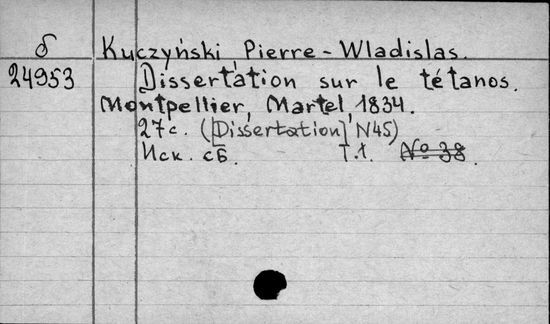 δ Kuczyński Pierre-Wladislas.
24953 Dissertation sur le tétanos.
Montpellier, Martel, 1834.
27 с. ([Dissertation] N45)
Иск. сб. т.1. № 38.